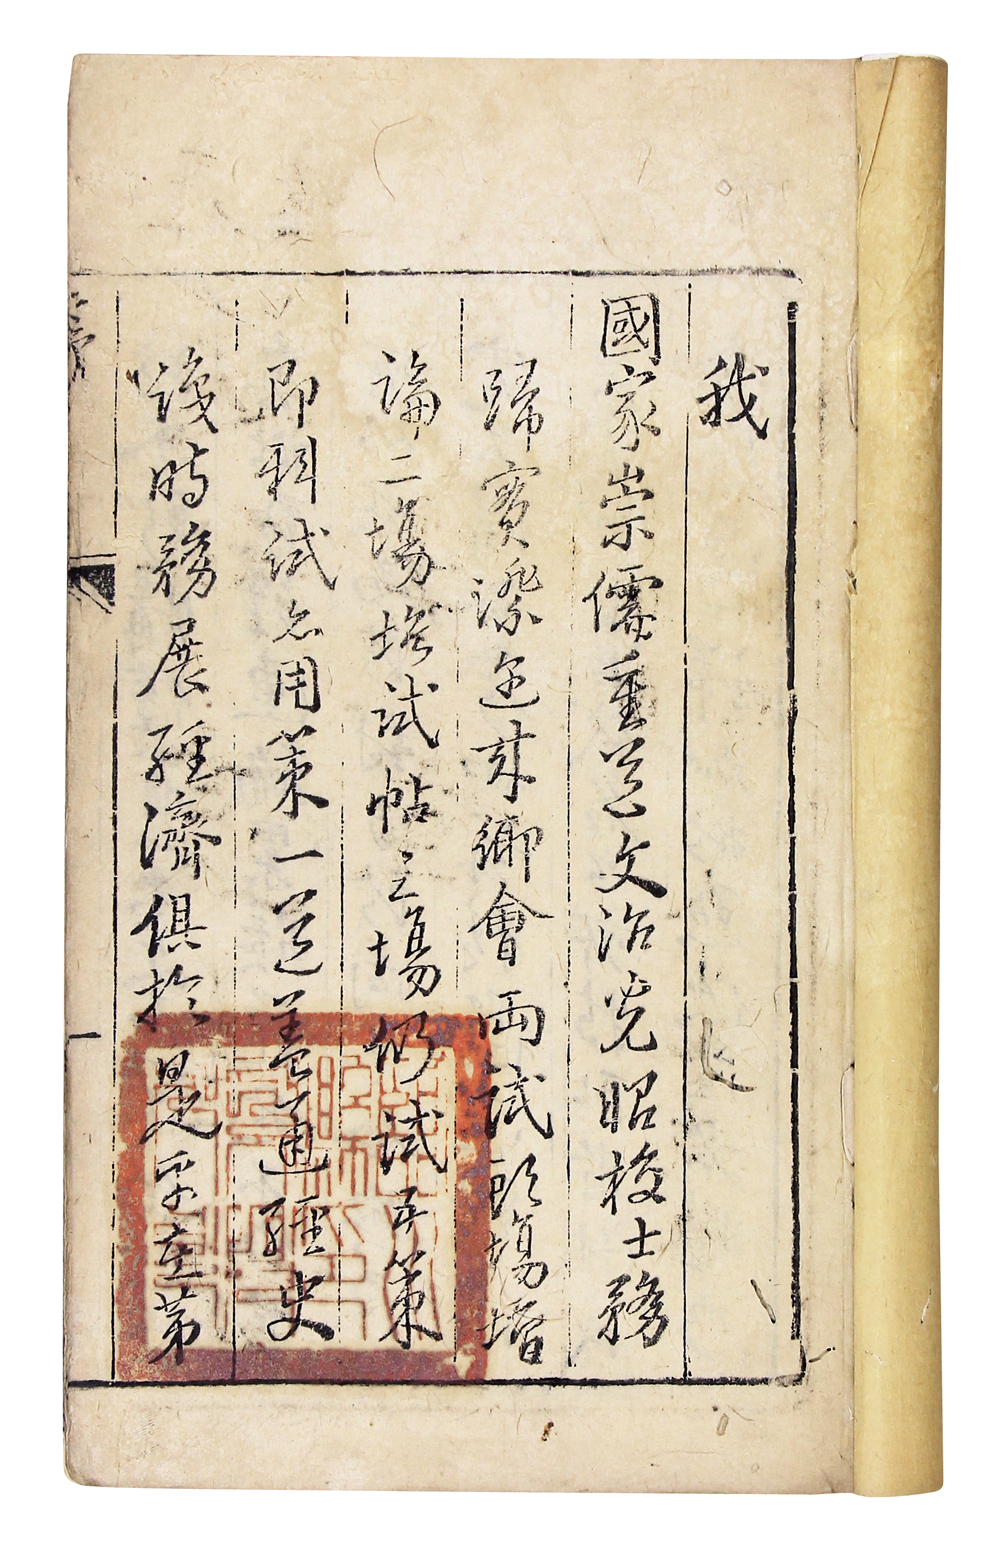 我
國家崇儒重道文治光昭校士務
歸實際迩来鄉會両試頭場增
論二場增試帖三場仍試五策
即科試亦用策一道蓋通經史
識時務展經濟俱於是乎在第